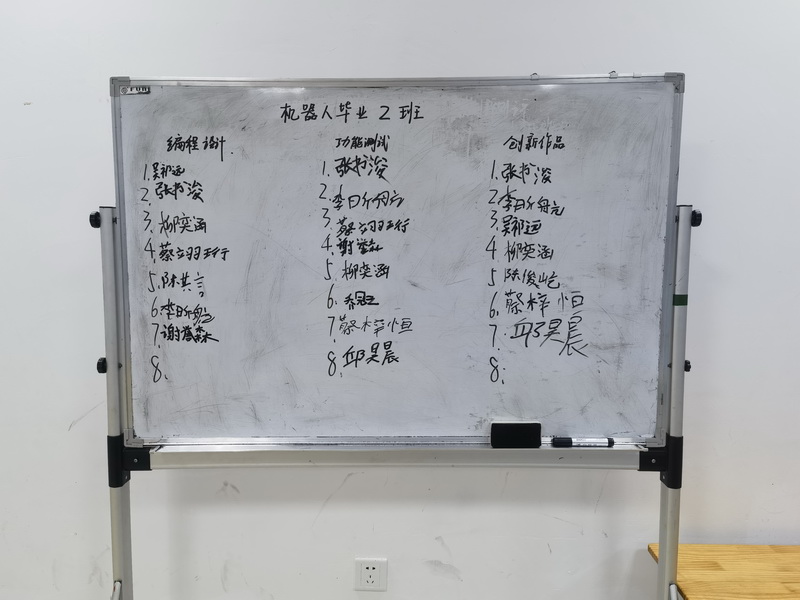 机器人毕业2班
编程设计
1.吴祁远
2.张书浚
3.柳奕涵
4.蔡立羽珩
5.陈其言
6.李昕航
7.谢馨森
8.
功能测试
1.张书浚
2.李昕航
3.蔡立羽珩
4.谢
5.柳奕涵
6.
7.蔡梓恒
8.邱昊晨
创新作品
1.张书浚
2.李昕航
3.吴祁远
4.柳奕涵
5.陈俊屹
6.蔡梓恒
7.邱昊晨
8.